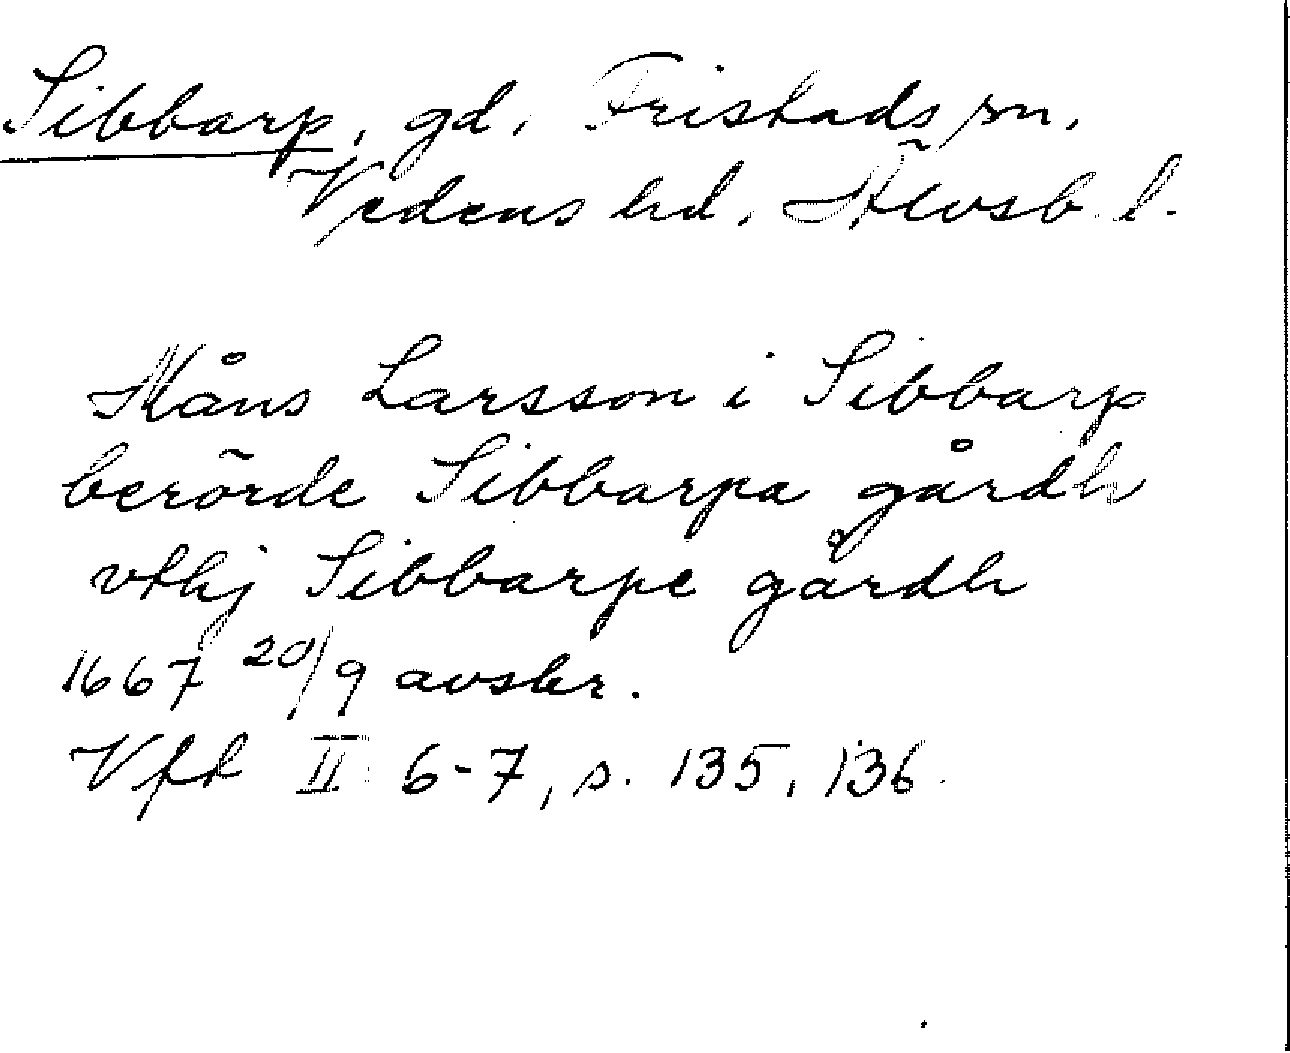 Sibbarp, gd, Fristads sn.
Vedens hd, Älvsb. l.
Måns Larsson i Sibbarp
berörde Sibbarpa gårdh
vthj Sibbarpe gårdh
1667 20/9 avskr.
Vfk II 6-7, s. 135, 136.